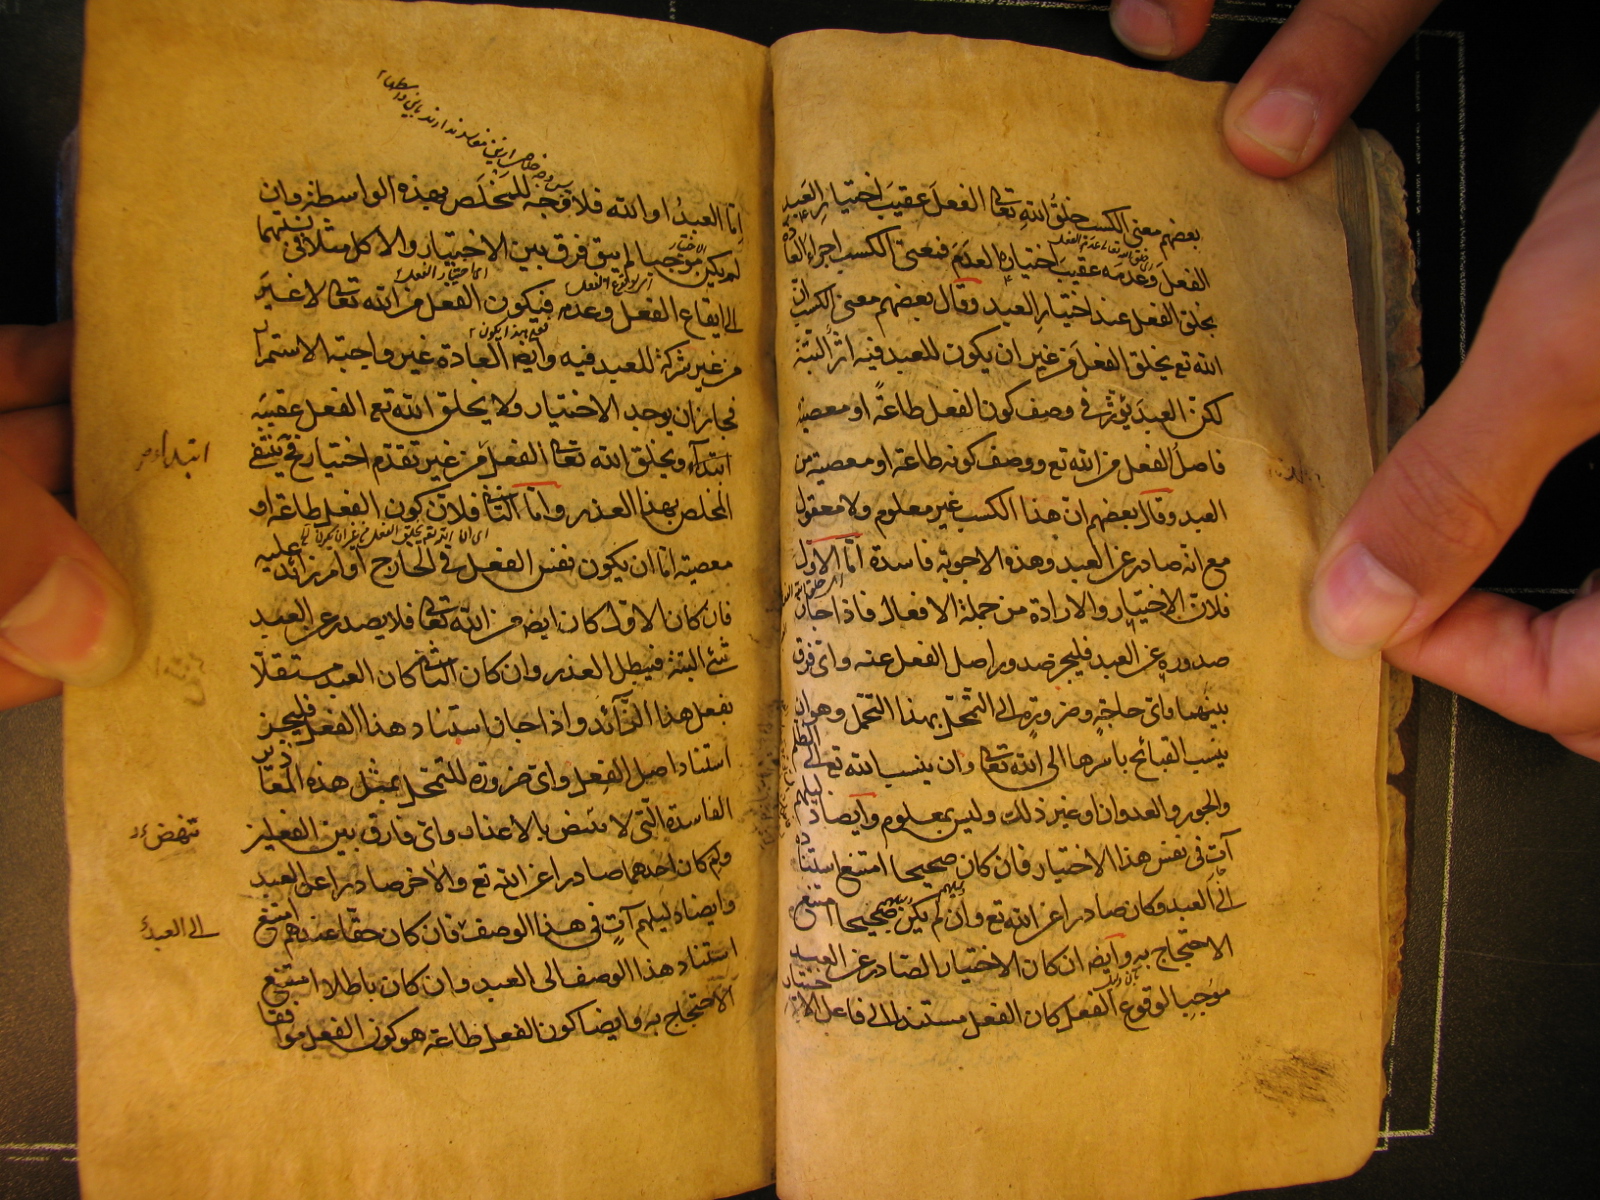 بعضهم معنى الكسب خلق الله تعالى الفعل عقيب اختيار العبد
الفعل وعدمه عقيب اختياره العدم فمعنى الكسب اجراء العادة
بخلق الفعل عند اختيار العبد وقال بعضهم معنى الكسب ان
الله تع يخلق الفعل من غير ان يكون للعبد فيه اثر البتة
لكن العبد يؤثر في وصف كون الفعل طاعة او معصية
فاصل الفعل من الله تع ووصف كونه طاعة او معصية من
العبد وقال بعضهم ان هذا الكسب غير معلوم ولا معقول
مع انه صادر عن العبد وهذه الاجوبة فاسدة اما الاول
فلان الاختيار والارادة من جملة الافعال فاذا جاز
صدوره عن العبد فليجز صدور اصل الفعل عنه واي فرق
بينهما واي حاجة وضرورة الى التمحل بهذا التمحل وهو ان
ينسب القبائح باسرها الى الله تعالى وان ينسب الله تع الى الظلم
والجور والعدوان وغير ذلك وليس بمعلوم وايضا دليلهم
آت في نفس هذا الاختيار فان كان صحيحا امتنع استناده
الى العبد وكان صادرا عن الله تع وان لم يكن صحيحا امتنع
الاحتجاج به وايضه ان كان الاختيار الصادر عن العبد
موجبا لوقوع الفعل كان الفعل مستندا الى فاعل الاختيار
اما العبد او الله فلا وجه للمخلص بهذه الواسطة وان
لم يكن موجبا لم يبق فرق بين الاختيار والاكل مثلا في نسبتهما
الى ايقاع الفعل وعدمه فيكون الفعل من الله تعالى لا غير
من غير شركة للعبد فيه وايضه العادة غير واجبة الاستمرار
فجاز ان يوجد الاختيار ولا يخلق الله تع الفعل عقيبه
ابتداء ويخلق الله تعالى الفعل من غير تقدم اختيار فح ينتفي
المخلص بهذا العذر واما الثاني فلان كون الفعل طاعة او
معصية اما ان يكون نفس الفعل في الخارج او امر زائد عليه
فان كان الاول كان ايضه من الله تعالى فلا يصدر عن العبد
شئ البتة فيبطل العذر وان كان الثاني كان العبد مستقلا
بفعل هذا الزائد واذا جاز استناد هذا الفعل فليجز
استناد اصل الفعل واي ضرورة للتمحل بمثل هذه المعاذير
الفاسدة التي لا تنهض بالاعتذار واي فارق بين الفعلين
ولم كان احدهما صادرا عن الله تع والآخر صادرا عن العبد
وايضا دليلهم آت في هذا الوصف فان كان حقا عندهم امتنع
استناد هذا الوصف الى العبد وان كان باطلا امتنع
الاحتجاج به وايضا كون الفعل طاعة هو كون الفعل موافقا
ابتداء
تنهض
الى العبد